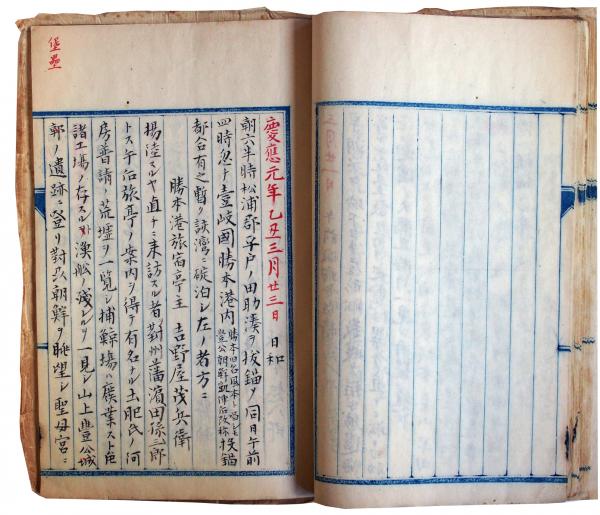 慶應元年乙丑三月廿三日　日和
朝六半時松浦郡平戸ノ田助湊ヲ抜錨ヲ同日午前
四時忽チ壹岐國勝本港内　投錨
都合有之暫ク該灣ニ碇泊シ左ノ者方ニ
勝本港旅宿亭主　吉野屋茂兵衛
揚陸スルヤ直チニ来訪スル者對州藩濱田 三郎
トス午后旅亭ノ案内ヲ得テ有名ナル土肥氏ノ河
房普請ノ荒墟ヲ一覧シ捕鯨場ハ廢業スト虽
諸工場ノ存スル外漢舩ノ残レルヲ一見シ山上豊公城
郭ノ遺跡ニ登リ對 朝鮮ヲ眺望シ聖母宮ニ
堡壘